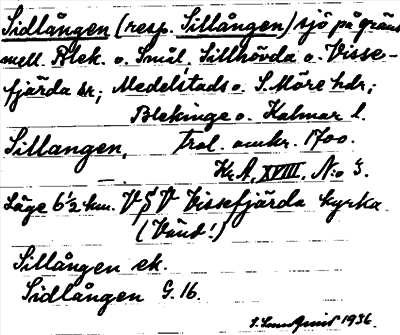 Sidlången (resp. Sillången) sjö på gräns
mell. Blek. o. Smål, Sillhövda o. Visse-
fjärda snr; Medelstads o. S. Möre hdr;
Blekinge o. Kalmar l.
Sillangen, trol. omkr. 1700.
Kr. A, XVIII, N:o 5.
Läge 6½ km. V S V Vissefjärda kyrka.
(Vänd!)
Sillången ek.
Sidlången G. 16.
1936.